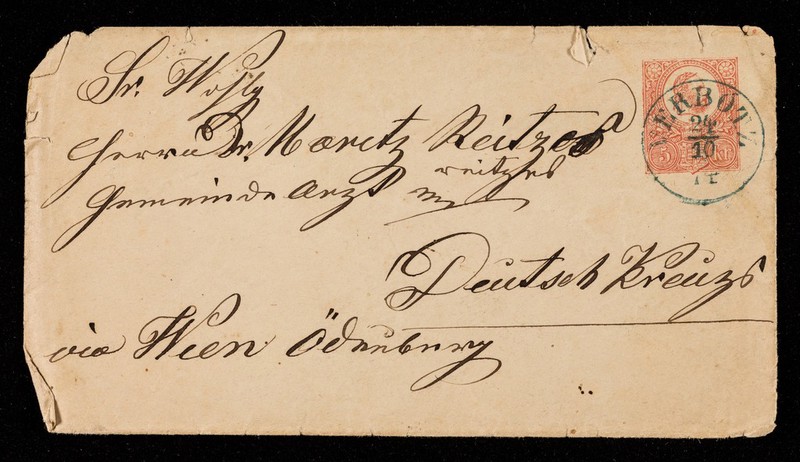 Sr. Wohlg
Herrn Dr. Moritz Reitzes
reitzes
Gemeinde Arzt in
Deutsch Kreuz
via Wien Ödenburg
VERBOTZ
24
10
5 KR